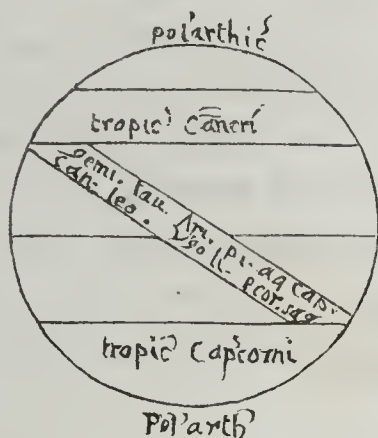 pol'arthic'
tropic' Cancri
gemi. tau. Ari. pi. aq cap.
Can. leo. v'go li. scor. sag
tropic' Cap'corni
Pol'arth'